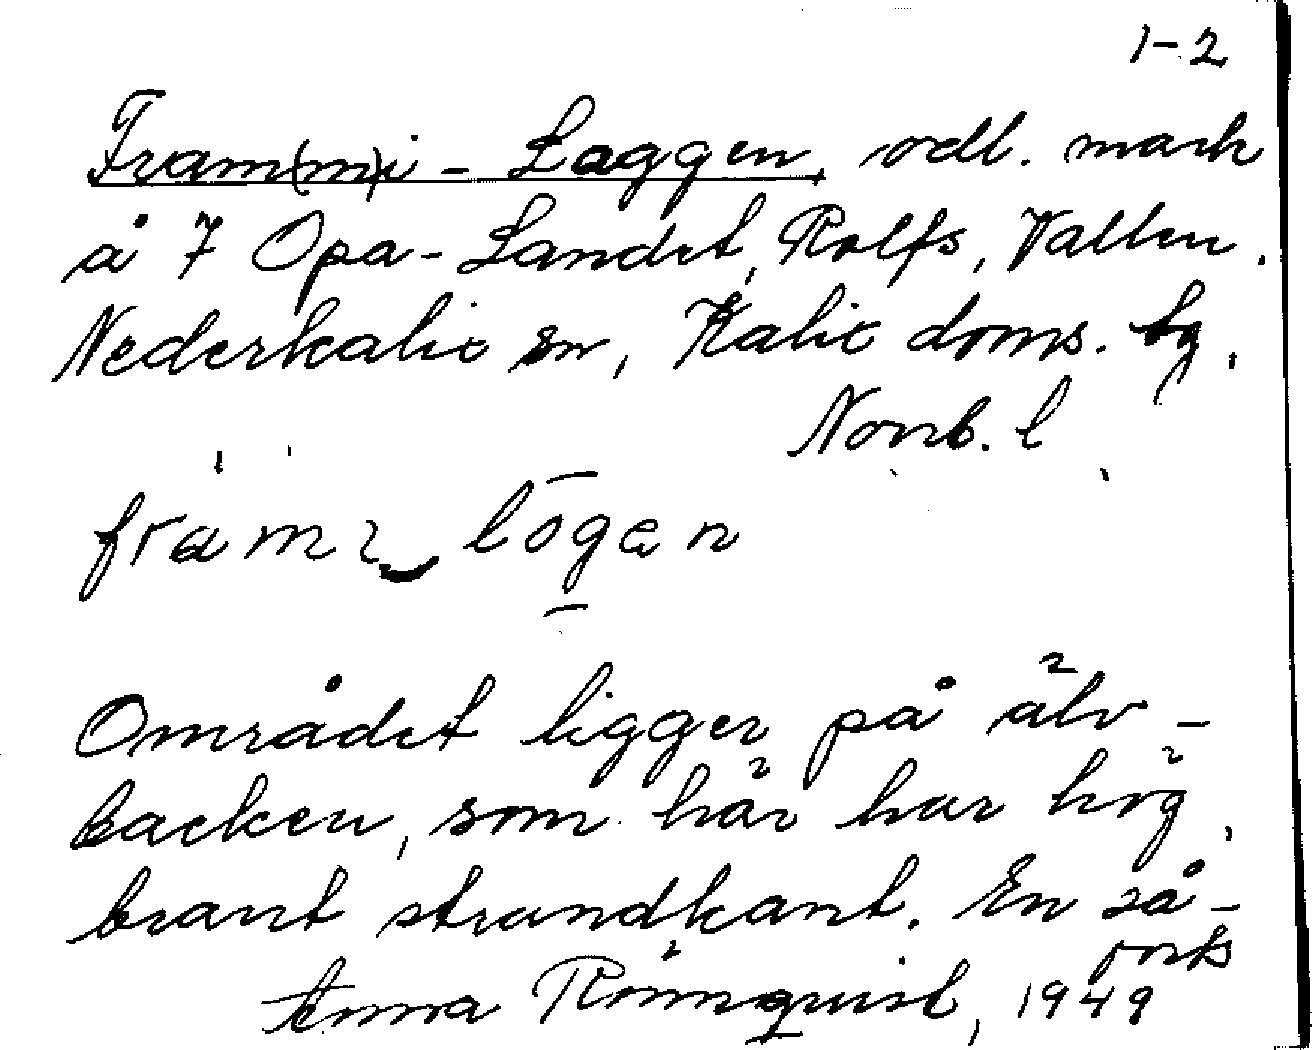 1-2
Fram(m)i - Laggen, odl. mark
å 7 Opa-Landet, Rolfs, Vallen.
Nederkalix sn, Kalix doms. tg,
Norrb. l
fram logen
Området ligger på älv-
backen, som här har hög,
brant strandkant. En så-
Anna Rönnquist, 1949 orts